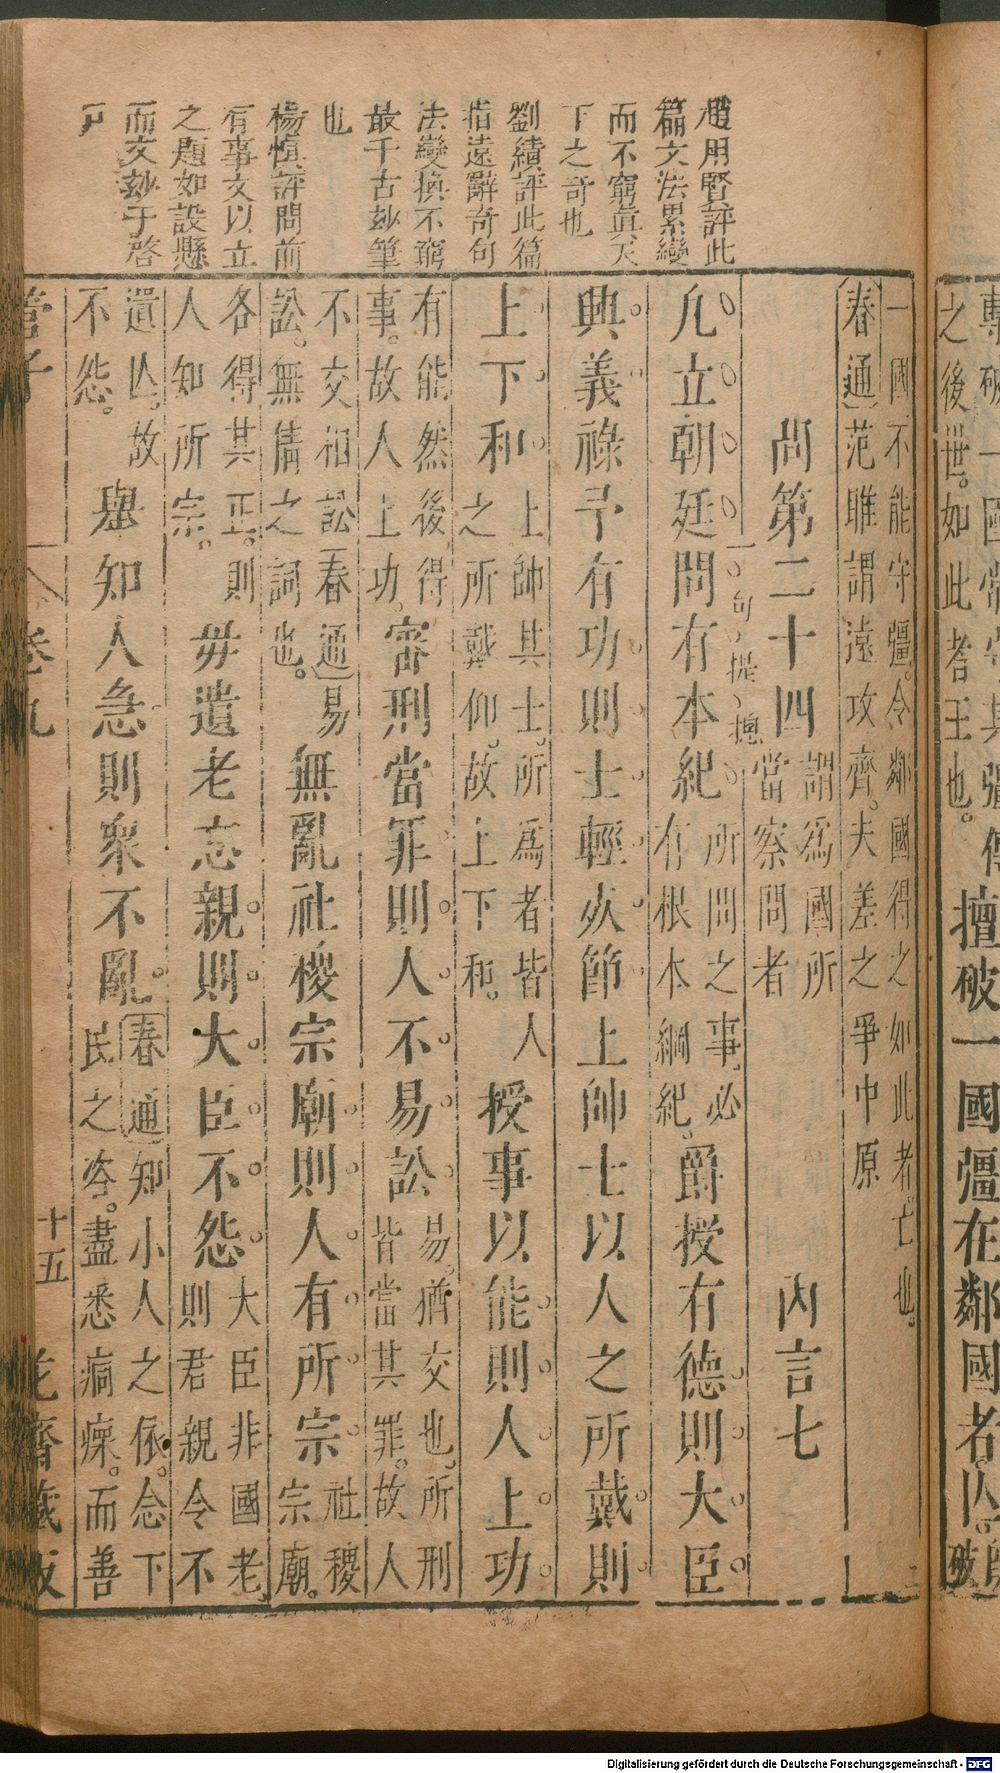 專破一國常守其彊傳
之後世。如此者王也。
擅破一國彊在鄰國者。亾。
破
一國不能守彊。令鄰國得之如此者亡也。
春通范雎謂遠攻齊。夫差之爭中原
趙用賢評此
篇文法累變
而不窮眞天
下之奇也
劉績評此篇
指遠辭奇句
法變換不窮
最千古玅筆
也
楊愼評問前
有事文以立
之題如設懸
而文玅于啓
戸
問第二十四
謂爲國所
當察問者
內言七
一句提總
凡立朝廷問有本紀
所問之事。必
有根本綱紀。
爵授有德則大臣
興義祿予有功則士輕死節上帥士以人之所戴則
上下和
上帥其士。所爲者皆人
之所戴仰。故上下和。
授事以能則人上功
有能然後得
事。故人上功。
審刑當罪則人不易訟
易。猶交也。所刑
皆當其罪。故人
不交相訟春通易
訟。無情之詞也。
無亂社稷宗廟則人有所宗
社稷
宗廟。
各得其正。則
人知所宗。
毋遺老忘親則大臣不怨
大臣非國老
則君親令不
遺亾。故
不怨。
舉知人急則衆不亂
春通知小人之依。念下
民之咨。盡悉痌瘝。而善
管子
卷九
十五
花齋藏板
Digitalisierung gefördert durch die Deutsche Forschungsgemeinschaft - DFG